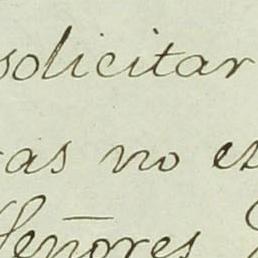 solicitar
as no es
Señores